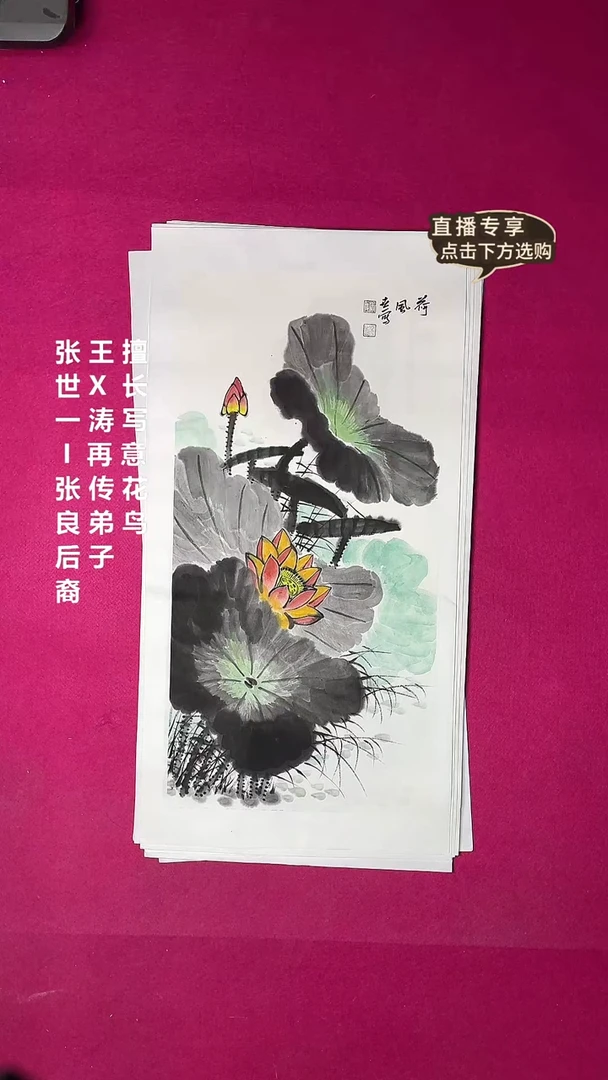 直播专享
点击下方选购
荷風
擅长写意花鸟
王X涛再传弟子
张世一一张良后裔